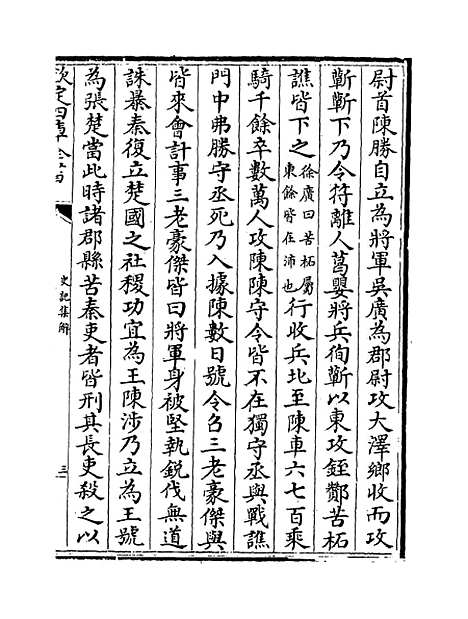 尉首陳勝自立為將軍吳廣為郡尉攻大澤鄉收而攻
蘄蘄下乃令符離人葛嬰將兵徇蘄以東攻銍酇苦柘
譙皆下之徐廣曰苦柘屬東餘皆在沛也行收兵北至陳車六七百乘
騎千餘卒數萬人攻陳陳守令皆不在獨守丞與戰譙
門中弗勝守丞死乃入據陳數日號令召三老豪傑與
皆來會計事三老豪傑皆曰將軍身被堅執銳伐無道
誅暴秦復立楚國之社稷功宜為王陳涉乃立為王號
為張楚當此時諸郡縣苦秦吏者皆刑其長吏殺之以
欽定四庫全書
史記集解
三